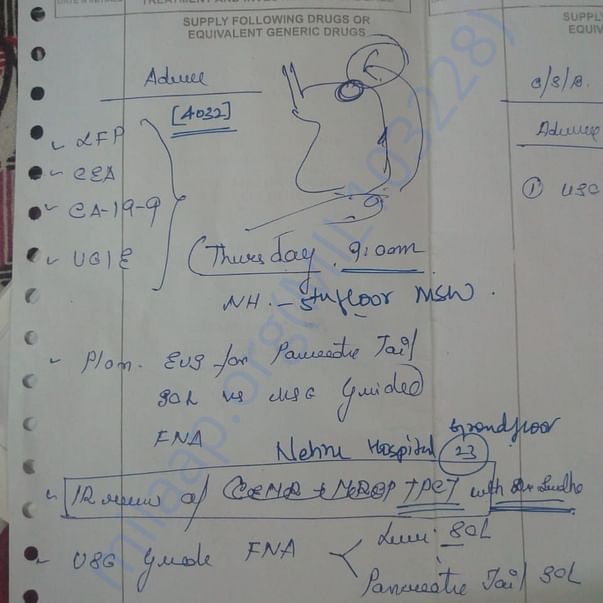 TREATMENT AND
SUPPLY FOLLOWING DRUGS OR
EQUIVALENT GENERIC DRUGS
SUPPL
EQUIV
Advice
[4032]
LFP
CEA
CA-19-9
UGIE
Thursday 9:00am
NH. - 5th floor MSW.
Plan. EUS for Pancreatic Tail
SOL vs USG Guided
FNA
Nehru Hospital Grandfloor
23
IR review of CEMR + MRCP TPCT with Dr
USG Guide FNA
Liver SOL
Pancreatic Tail SOL
C/S/B.
Advice
① USG
milaap.org(MIL1033228)